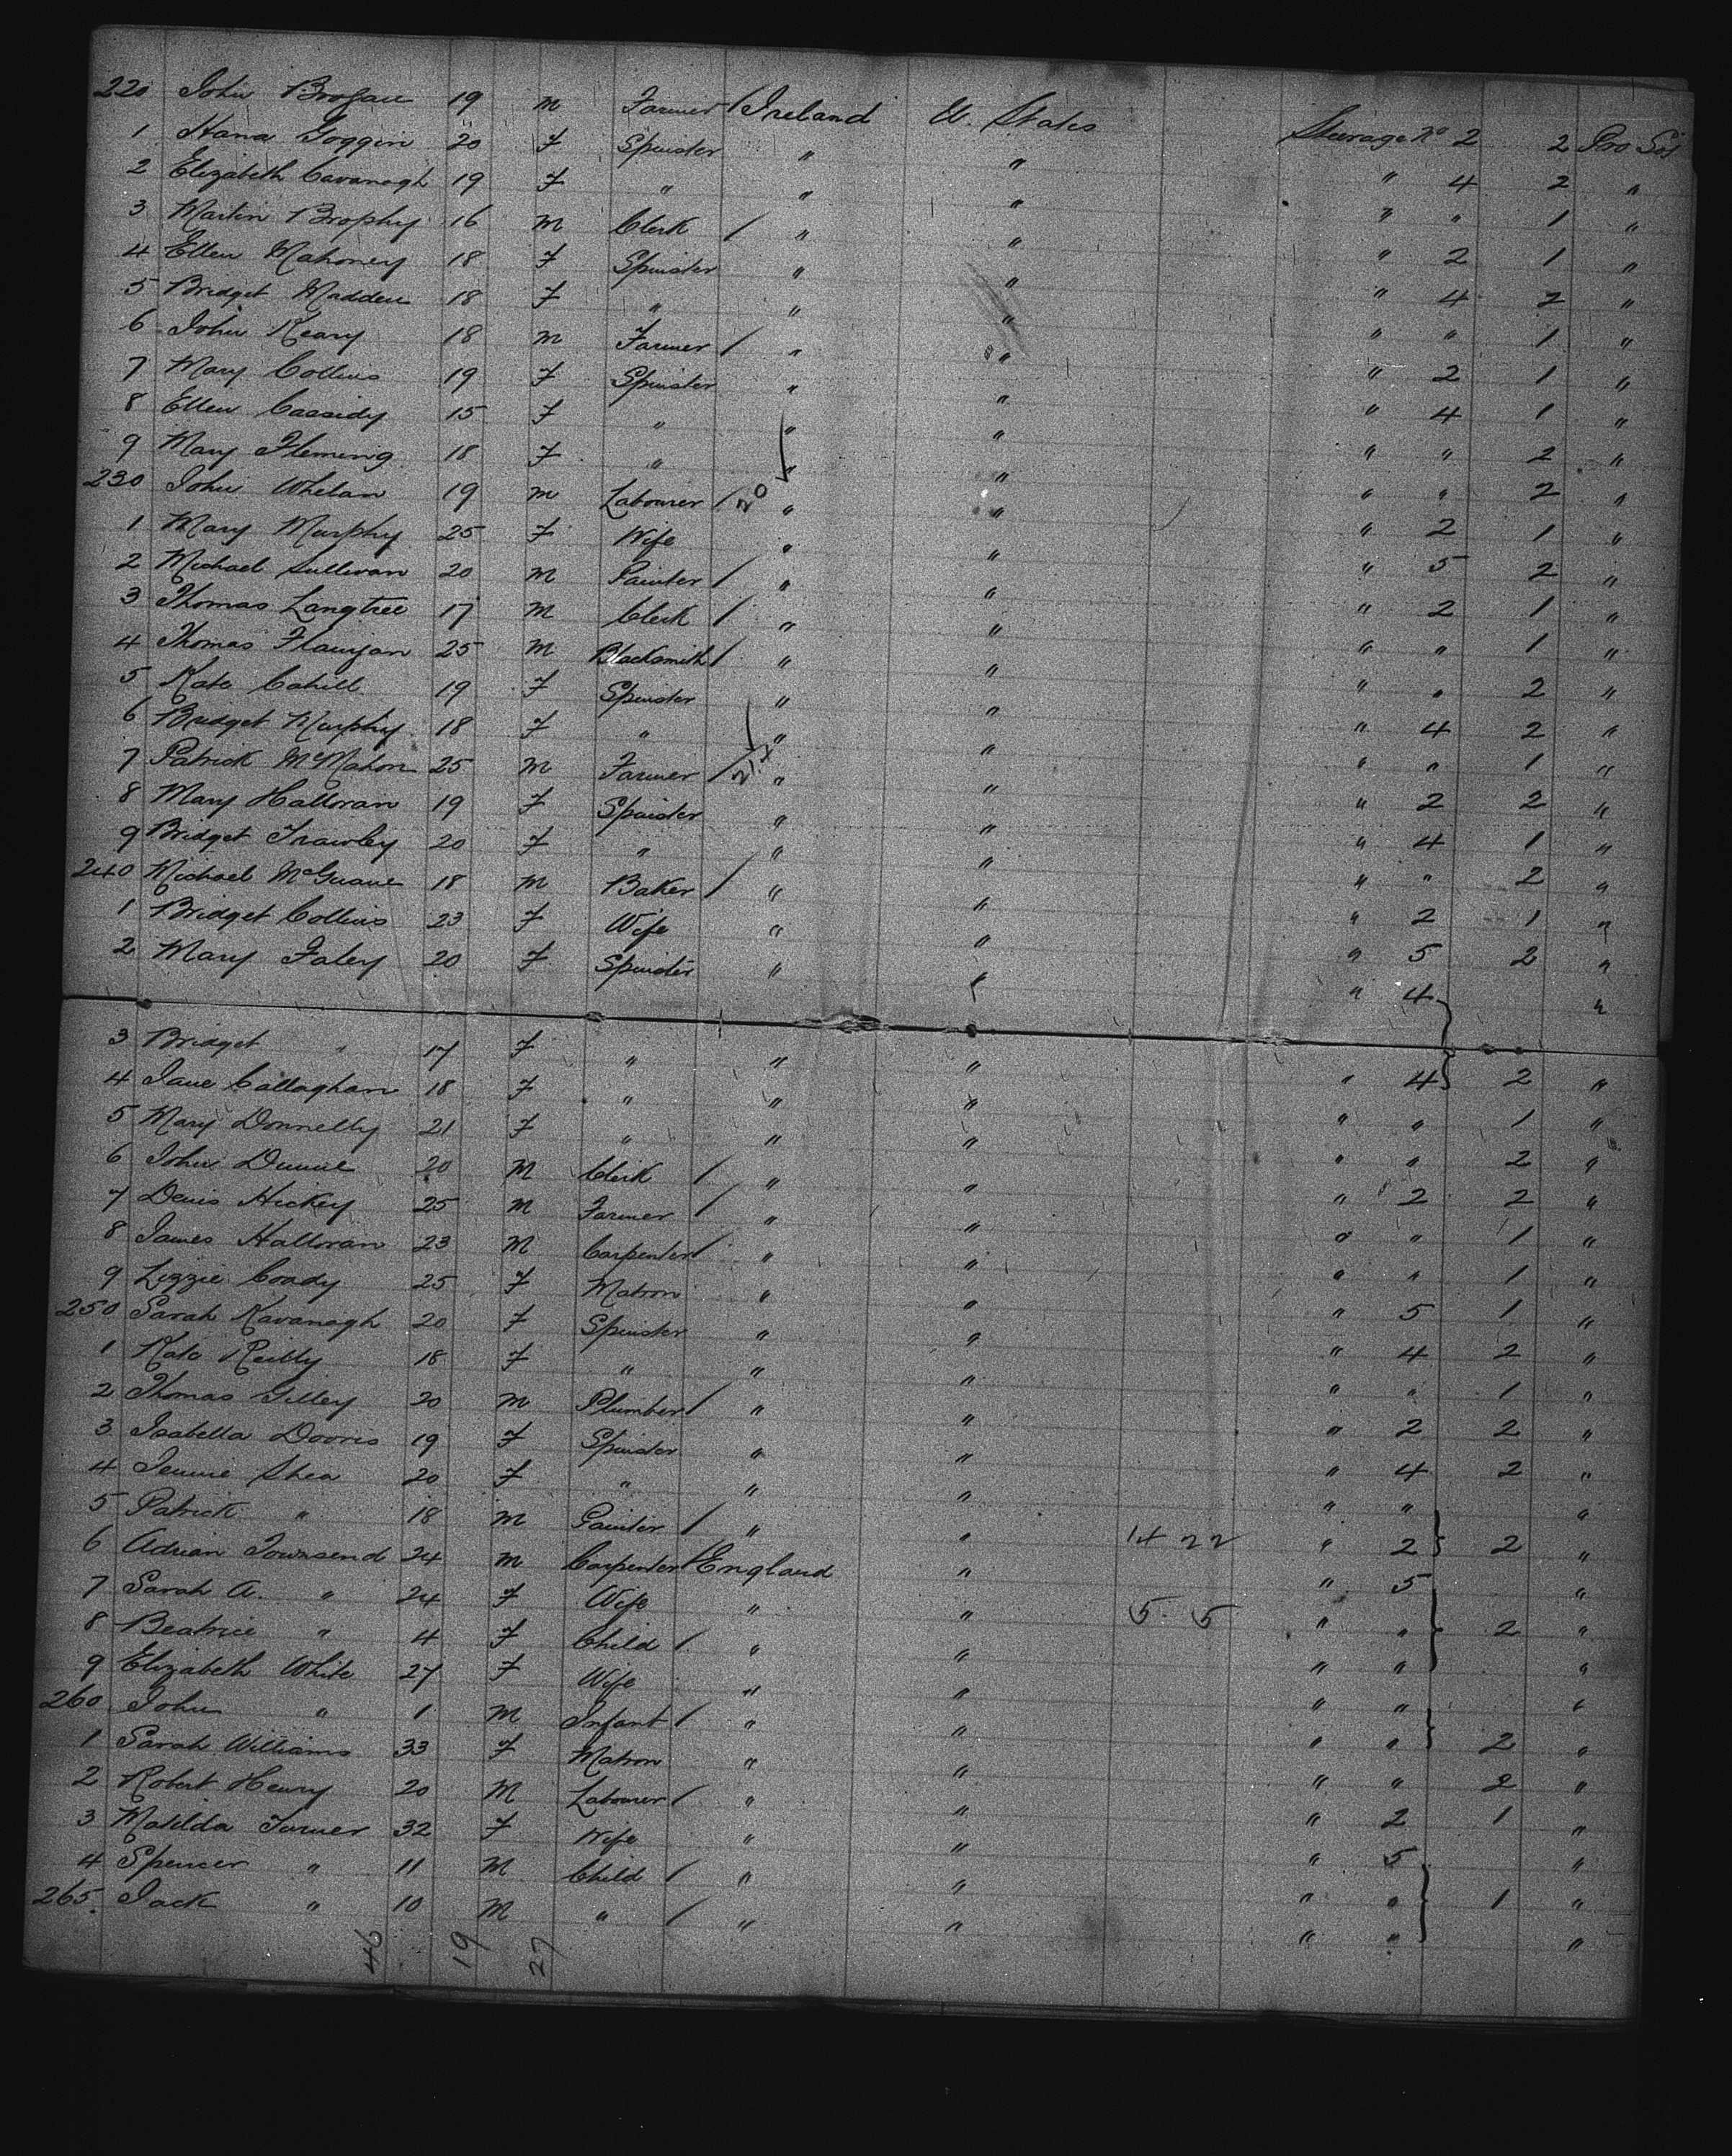 220 John Brogan 19 m Farmer / Ireland U. States Steerage No 2 2 Pro Soj
1 Hana Goggin 20 F Spinster " " " 4 2 "
2 Elizabeth Cavanagh 19 F " " " " " 1 "
3 Martin Brophy 16 m Clerk / " " " 2 1 "
4 Ellen Mahoney 18 F Spinster " " " 4 2 "
5 Bridget Madden 18 F " " " " " 1 "
6 John Keary 18 m Farmer / " " " 2 1 "
7 Mary Collins 19 F Spinster " " " 4 1 "
8 Ellen Cassidy 15 F " " " " " 2 "
9 Mary Fleming 18 F " " " " " 2 "
230 John Whelan 19 m Labourer / 20 " " " 2 1 "
1 Mary Murphy 25 F Wife " " " 5 2 "
2 Michael Sullivan 20 m Painter / " " " 2 1 "
3 Thomas Langtree 17 m Clerk / " " " " 1 "
4 Thomas Flanigan 25 m Blacksmith / " " " " 2 "
5 Kate Cahill 19 F Spinster " " " 4 2 "
6 Bridget Murphy 18 F " " " " " 1 "
7 Patrick McMahon 25 m Farmer / " " " 2 2 "
8 Mary Halloran 19 F Spinster " " " 4 1 "
9 Bridget Frawley 20 F " " " " " 2 "
240 Michael McGuane 18 m Baker / " " " 2 1 "
1 Bridget Collins 23 F Wife " " " 5 2 "
2 Mary Faley 20 F Spinster " " " 4 "
3 Bridget " 17 F " " " " 4 2 "
4 Jane Callaghan 18 F " " " " " 1 "
5 Mary Donnelly 21 F " " " " " 2 "
6 John Dunne 20 m Clerk / " " " 2 2 "
7 Denis Hickey 25 m Farmer / " " " " 1 "
8 James Halloran 23 m Carpenter / " " " " 1 "
9 Lizzie Coady 25 F Matron " " " 5 1 "
250 Sarah Kavanagh 20 F Spinster " " " 4 2 "
1 Kate Reilly 18 F " " " " " 1 "
2 Thomas Tilley 20 m Plumber / " " " 2 2 "
3 Isabella Dooris 19 F Spinster " " " 4 2 "
4 Jennie Shea 20 F " " " " " "
5 Patrick " 18 m Painter / " " 14 22 " 2 2 "
6 Adrian Townsend 24 m Carpenter / England " " 5 "
7 Sarah A. " 24 F Wife " " 5 5 " " 2 "
8 Beatrice " 4 F Child / " " " " "
9 Elizabeth White 27 F Wife " " " " "
260 John " 1 m Infant / " " " " 2 "
1 Sarah Williams 33 F Matron " " " " 2 "
2 Robert Henry 20 m Labourer / " " " 2 1 "
3 Matilda Turner 32 F Wife " " " 5 "
4 Spencer " 11 m Child / " " " " 1 "
265 Jack " 10 m " / " " " " "
46 19 27